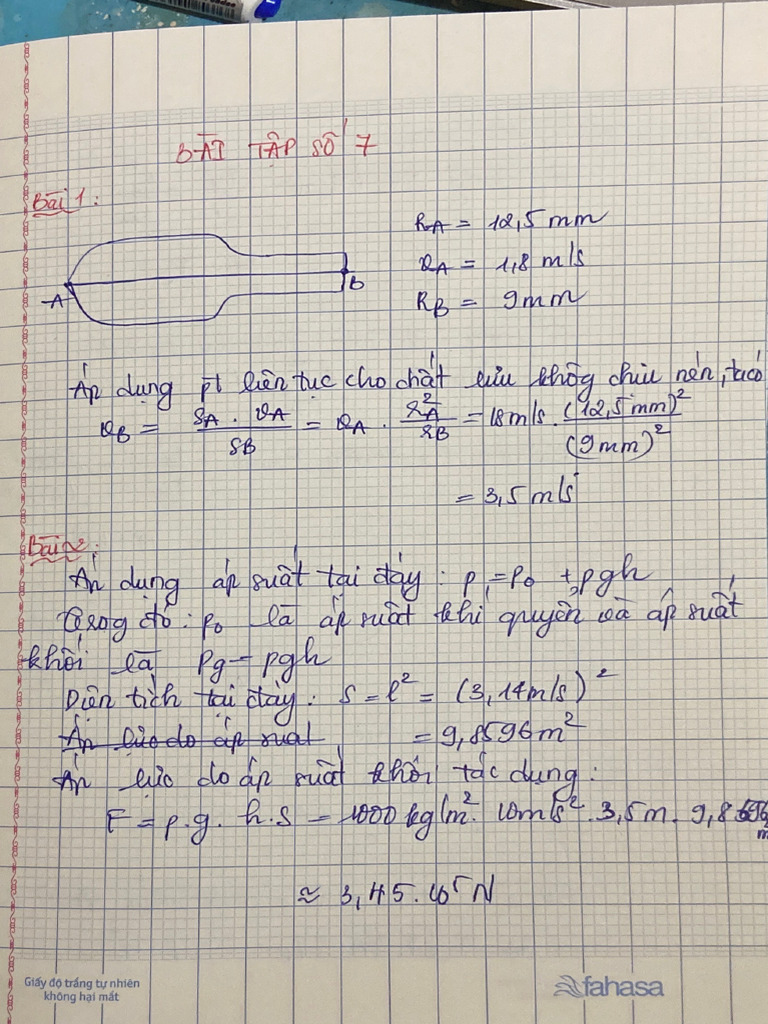 BÀI TẬP SỐ 7
Bài 1:
A
B
R_A = 12,5 mm
v_A = 1,8 m/s
R_B = 9mm
Áp dụng pt liên tục cho chất lưu không chịu nén, ta có
v_B = (S_A . v_A)/S_B = v_A . R_A^2/R_B = 18m/s. (12,5 mm)²/(9mm)²
= 3,5 m/s
Bài 2:
Áp dụng áp suất tại đáy: p = p₀ + ρgh
Trong đó: p₀ là áp suất khí quyển và áp suất
khối là Pg = ρgh
Diện tích tại đáy: S = l² = (3,14m/s)²
Áp lực do áp suất = 9,8596 m²
Áp lực do áp suất khối tác dụng:
F = ρ.g. h.S = 1000 kg/m². 10m/s². 3,5m. 9,8
≈ 3,45.10⁵ N
Giấy độ trắng tự nhiên
không hại mắt
fahasa